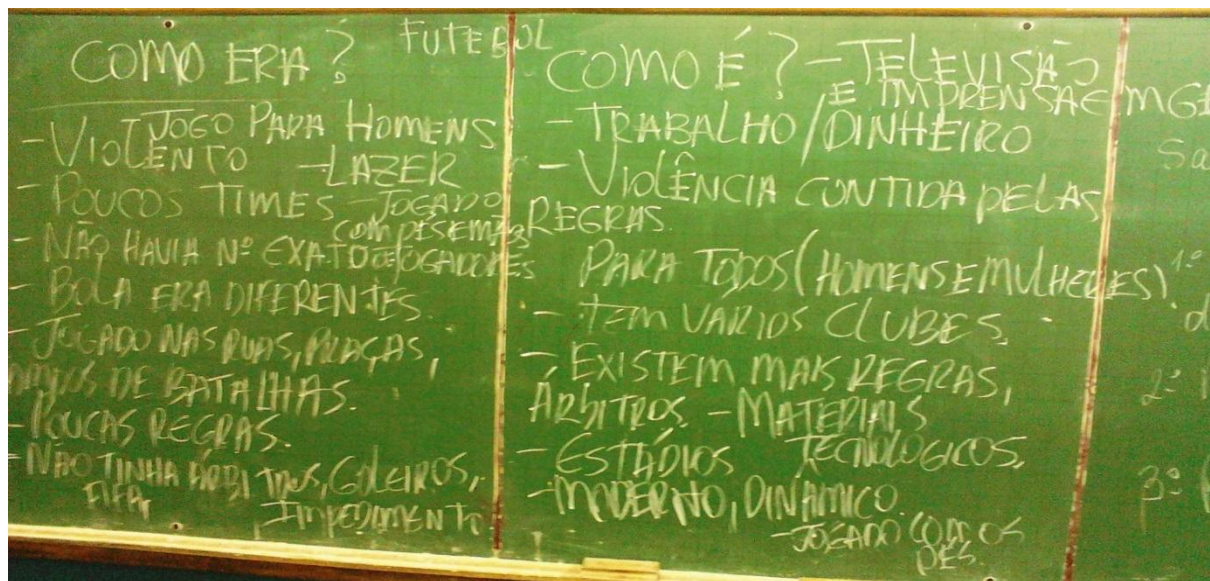 FUTEBOL
COMO ERA?
- JOGO PARA HOMENS
- VIOLENTO - LAZER
- POUCOS TIMES - JOGADO
COM PÉS E MÃOS
- NÃO HAVIA Nº EXATO DE JOGADORES
- BOLA ERA DIFERENTES.
- JOGADO NAS RUAS, PRAÇAS,
DE BATALHAS.
- POUCAS REGRAS.
- NÃO TINHA ÁRBITROS, GOLEIROS,
FIFA, IMPEDIMENTO
COMO É? - TELEVISÃO
E IMPRENSA EM
- TRABALHO/DINHEIRO
- VIOLÊNCIA CONTIDA PELAS
REGRAS.
PARA TODOS (HOMENS E MULHERES).
- TEM VARIOS CLUBES.
- EXISTEM MAIS REGRAS,
ÁRBITROS. - MATERIAIS
TECNOLOGICOS.
- ESTÁDIOS
- MODERNO, DINÂMICO.
- JOGADO COM OS
PÉS.
1º
2º
3º